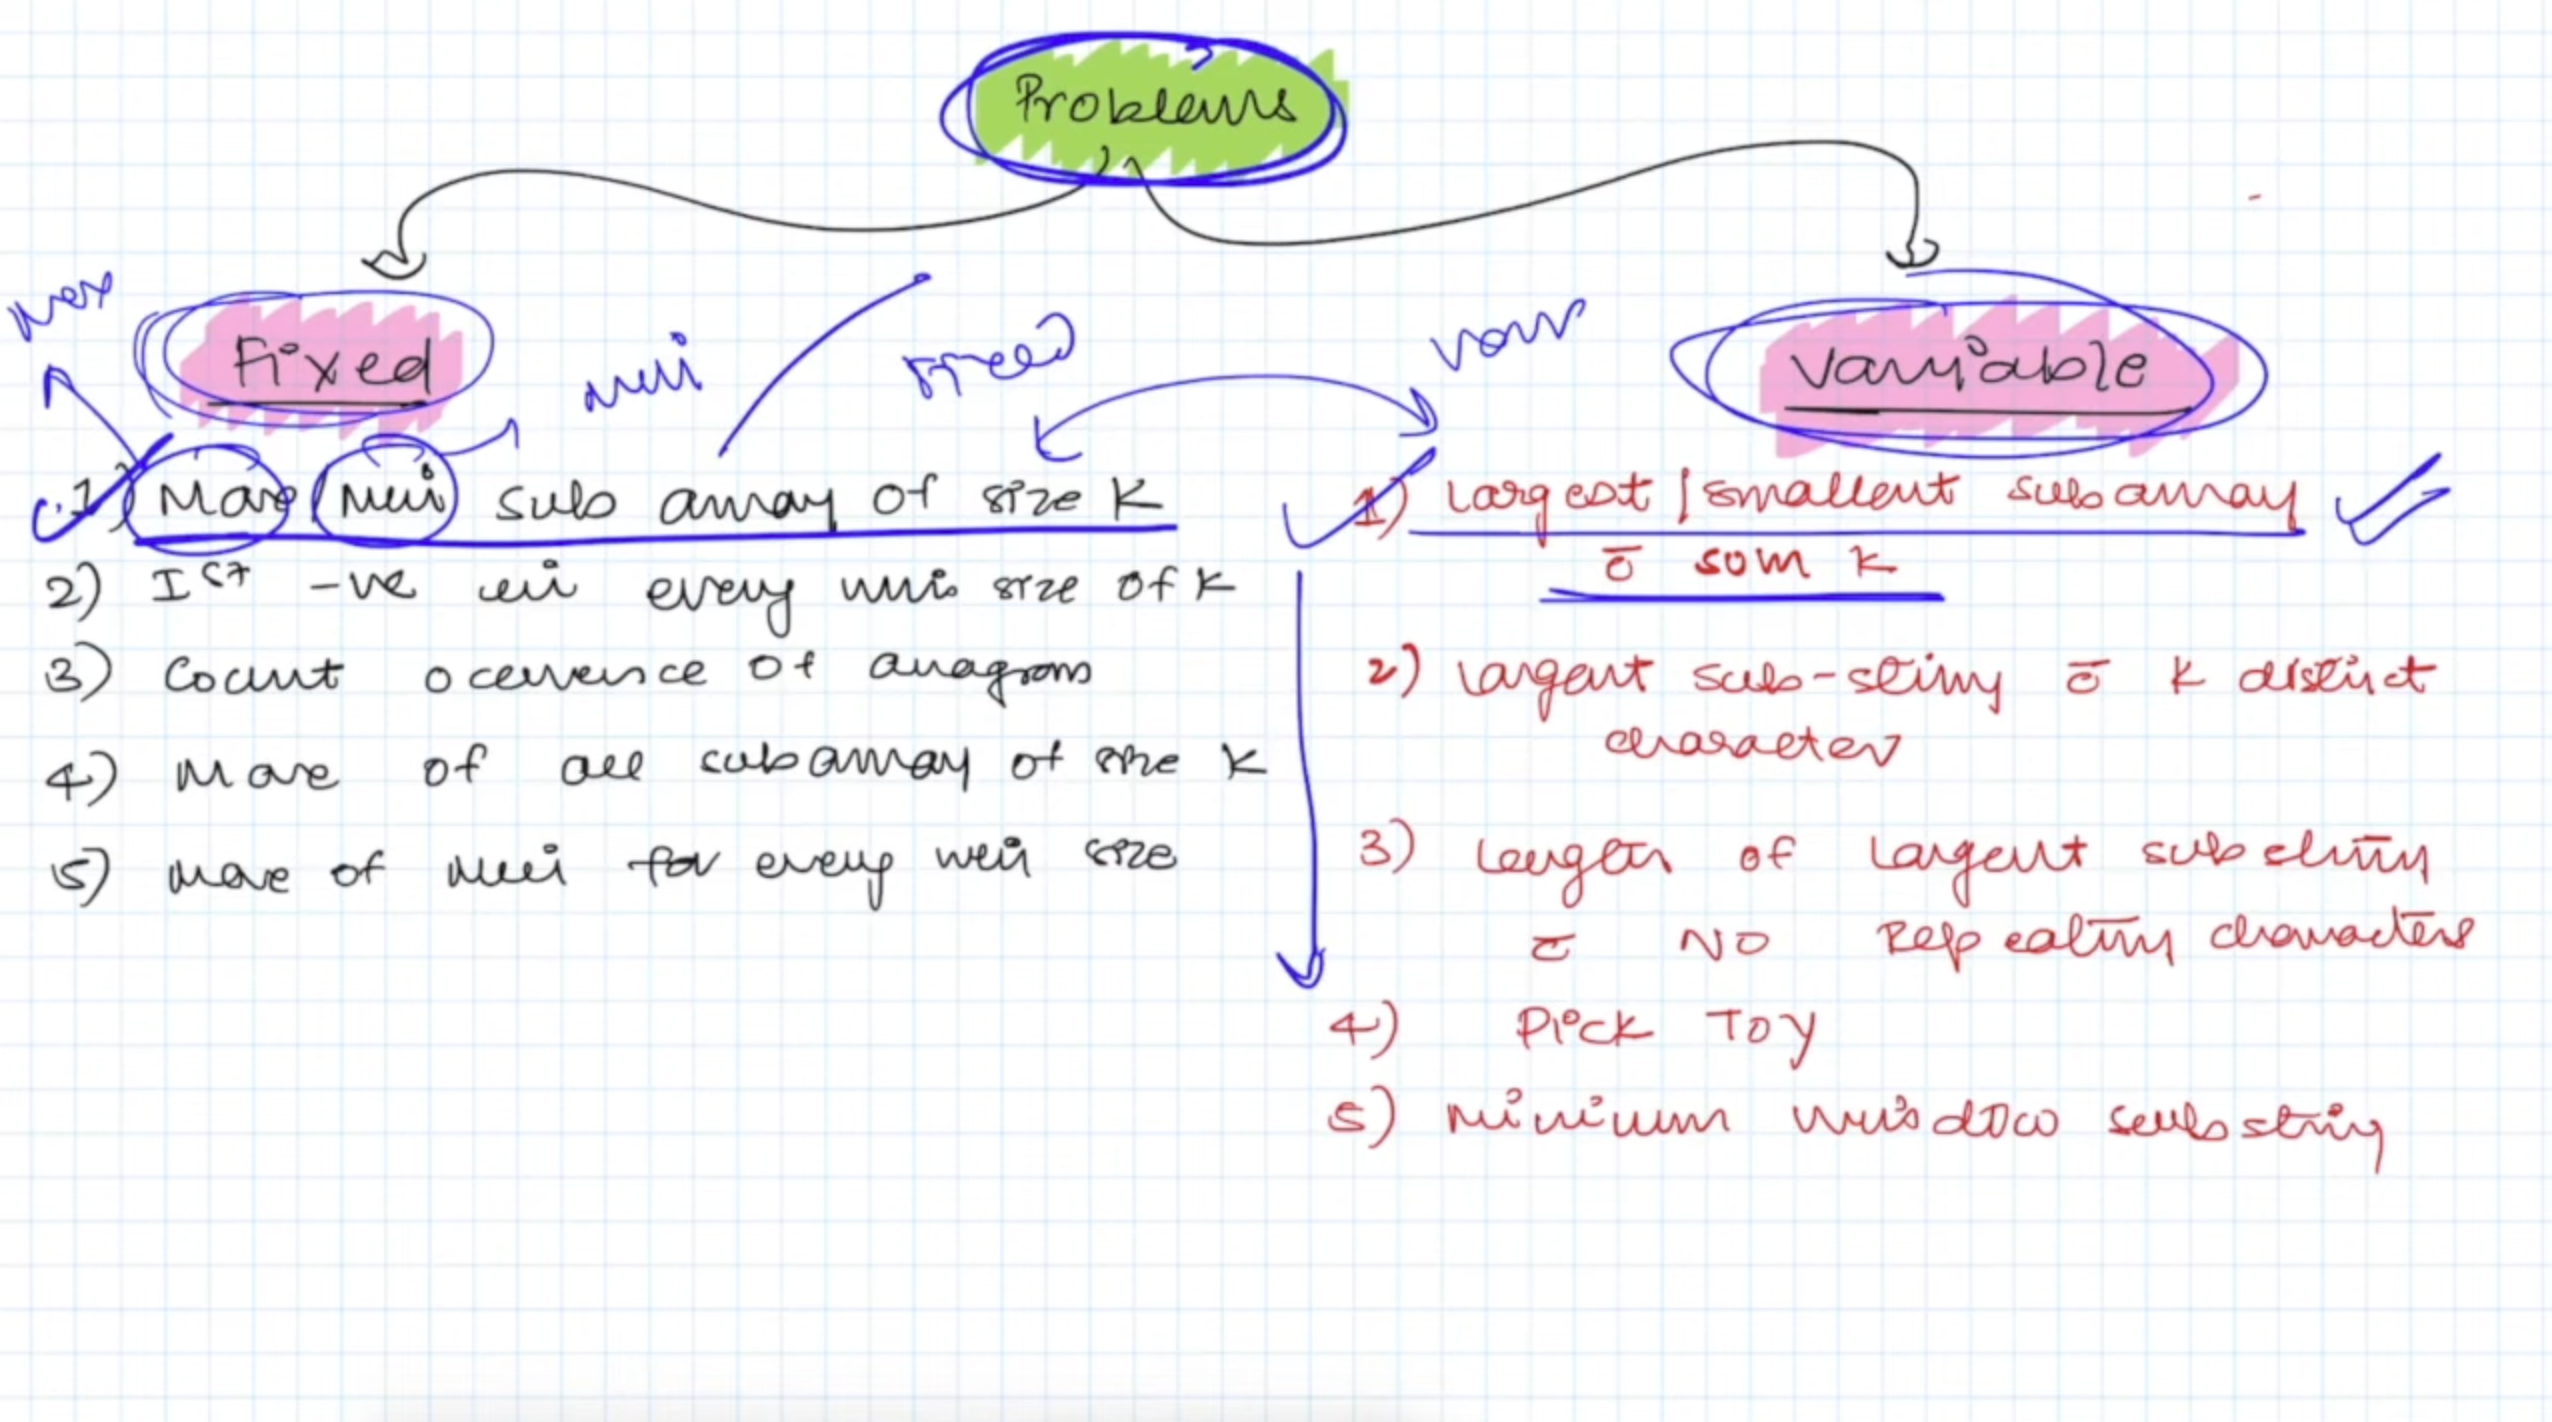 Problems
Fixed
Variable
max
min
fixed
var
1) Max/Min sub array of size K
2) Ist -ve in every win size of K
3) Count occurence of anagram
4) Max of all subarray of size K
5) Max of Min for every win size
1) Largest/smallest subarray
c̄ sum K
2) Largest sub-string c̄ K distinct
character
3) Length of largest substring
c̄ NO Repeating characters
4) Pick Toy
5) Minimum window substring